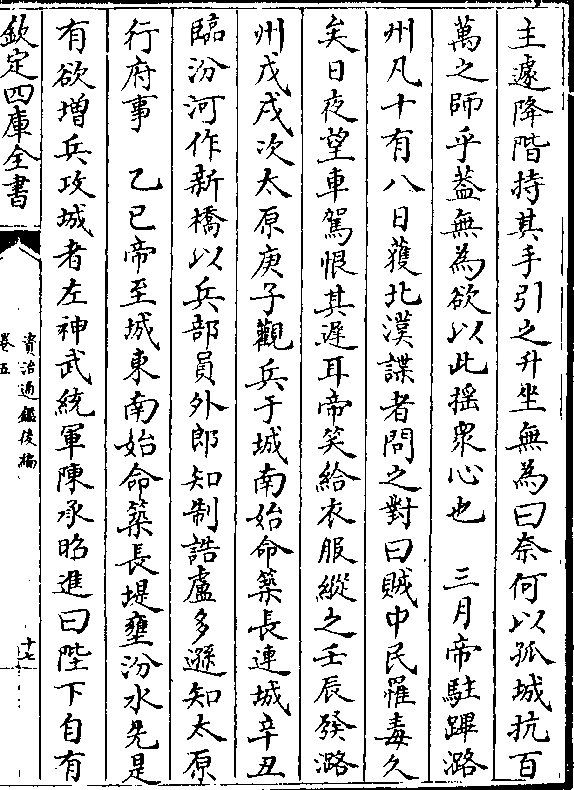 主遽降階持其手引之升坐無為曰奈何以孤城抗百
萬之師乎葢無為欲以此揺衆心也　三月帝駐蹕潞
州凡十有八日獲北漢諜者問之對曰賊中民罹毒久
矣日夜望車駕恨其遲耳帝笑給衣服縱之壬辰發潞
州戊戌次太原庚子觀兵于城南始命築長連城辛丑
臨汾河作新橋以兵部員外郎知制誥盧多遜知太原
行府事　乙巳帝至城東南始命築長堤壅汾水先是
有欲增兵攻城者左神武統軍陳承昭進曰陛下自有
欽定四庫全書
資治通鑑後編
卷五
十七